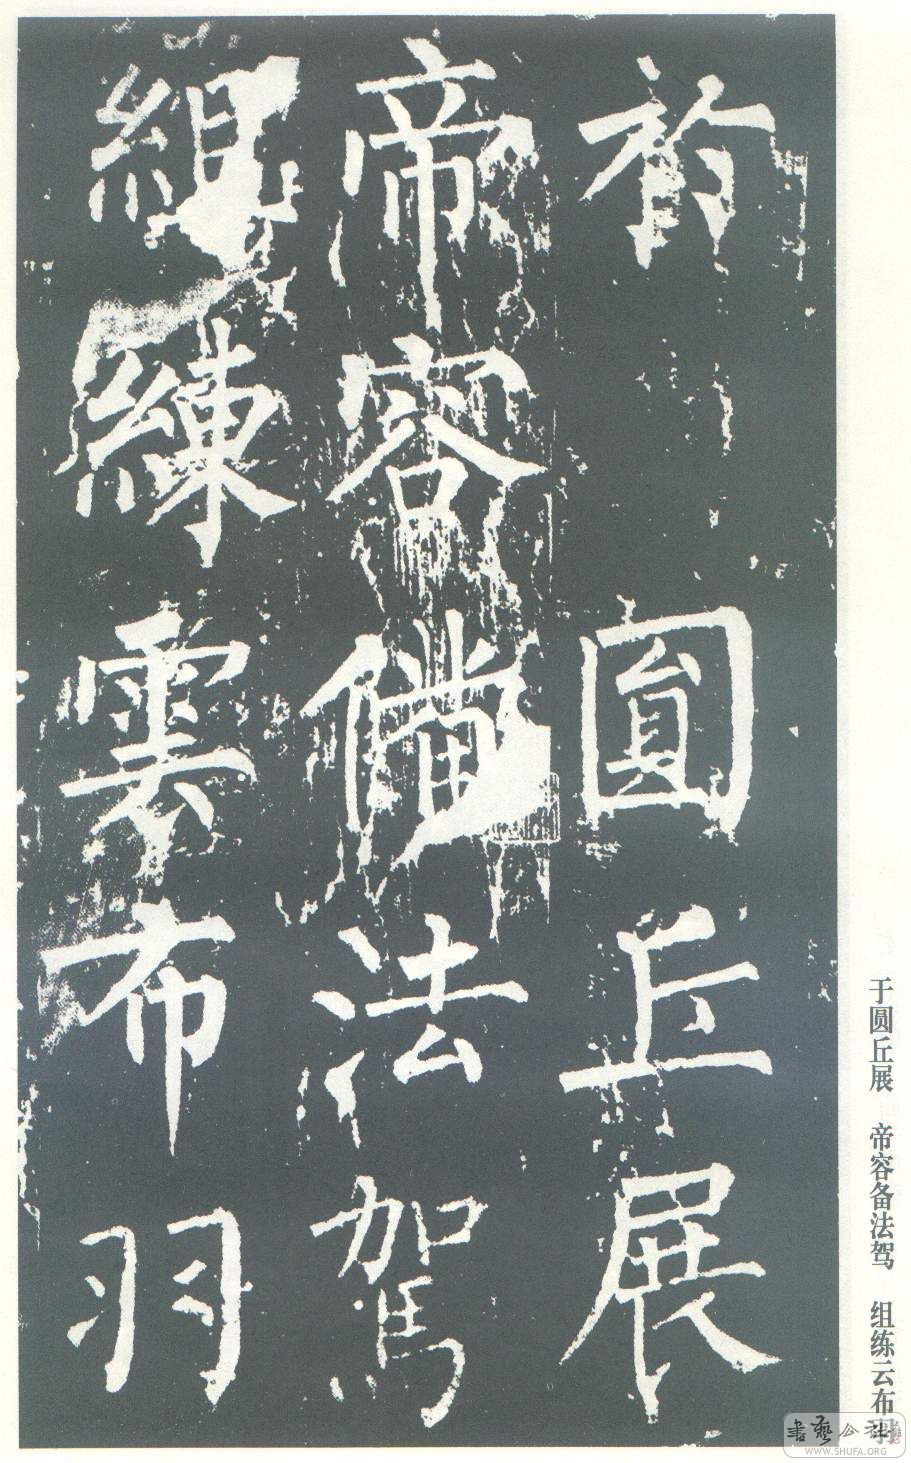 於圓丘展
帝容俻法駕
組練雲布羽
于圆丘展 帝容备法驾 组练云布羽
書藝公社
WWW.SHUFA.ORG